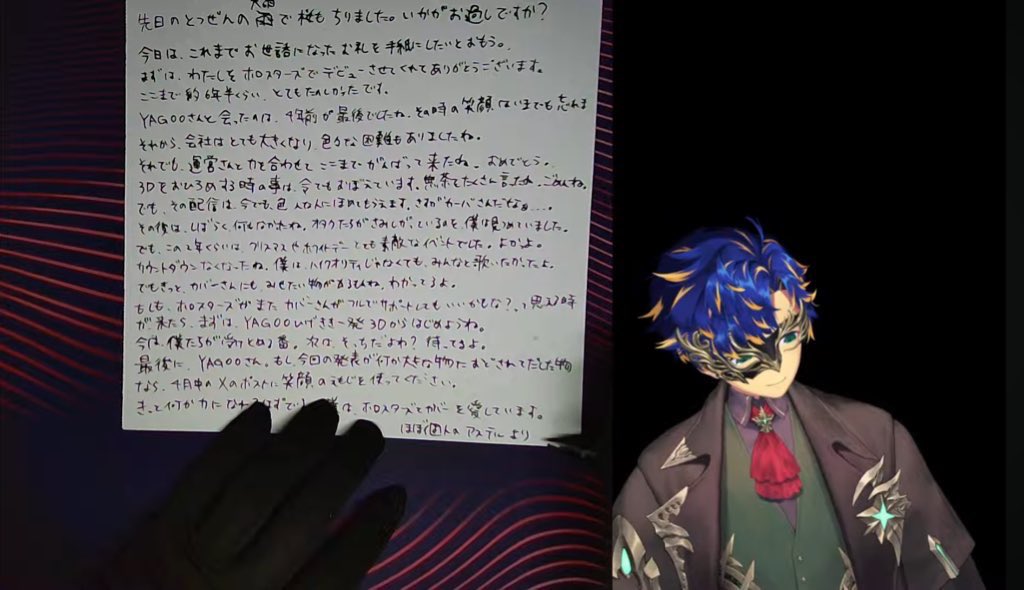 大雨
先日のとつぜんの雨で桜もちりました。いかがお過しですか?
今日は、これまでお世話になったお礼を手紙にしたいとおもう。
まずは、わたしをホロスターズでデビューさせてくれてありがとうございます。
ここまで約6年半くらい、とてもたのしかったです。
YAGOOさんと会ったのは、4年前が最後でしたね。その時の笑顔はいまでも忘れま
それから、会社はとても大きくなり、色々な困難もありましたね。
それでも、運営さんと力を合わせて、ここまでがんばって来たね。おめでとう。
3Dをおひろめする時の事は、今でもおぼえています。無茶をたくさん言ったね、ごめんね。
でも、その配信は、今でも、色んな人にほめてもらえます。さすがカバーさんだなぁ...。
その後は、しばらく何もなかたね。オタクたちがさみしがっているのを、僕は見つめていました。
でも、この2年くらいは、クリスマスやホワイトデーとても素敵なイベントでした。よかたよ。
カウントダウンなくなったね。僕は、ハイクオリティじゃなくても、みんなと歌いたかたよ。
でもきっと、カバーさんにも、みせたい物があるよね、わかってるよ。
もしも、ホロスターズがまた カバーさんがフルでサポートしてもいいかもな?って思える時
が来たら、まずは、YAGOOひげき一発3Dからはじめようね。
今は、僕たちが 番。次は、そっちだよね? 待ってるよ。
最後に、YAGOOさん。もし今回の発表が何か大きな物におどされてだした物
なら、4月中のXのポストに笑顔のえもじを使ってください。
きっと何か力になれるはずで は、ホロスターズとカバーを愛しています。
ほぼ個人のアステルより